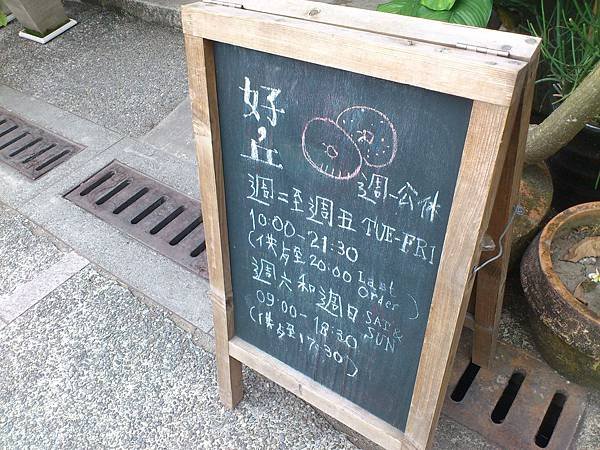 好丘
週一公休
週二至週五 TUE-FRI
10:00-21:30
(供餐至20:00 Last Order)
週六和週日 SAT & SUN
09:00-18:30
(供餐至17:30)